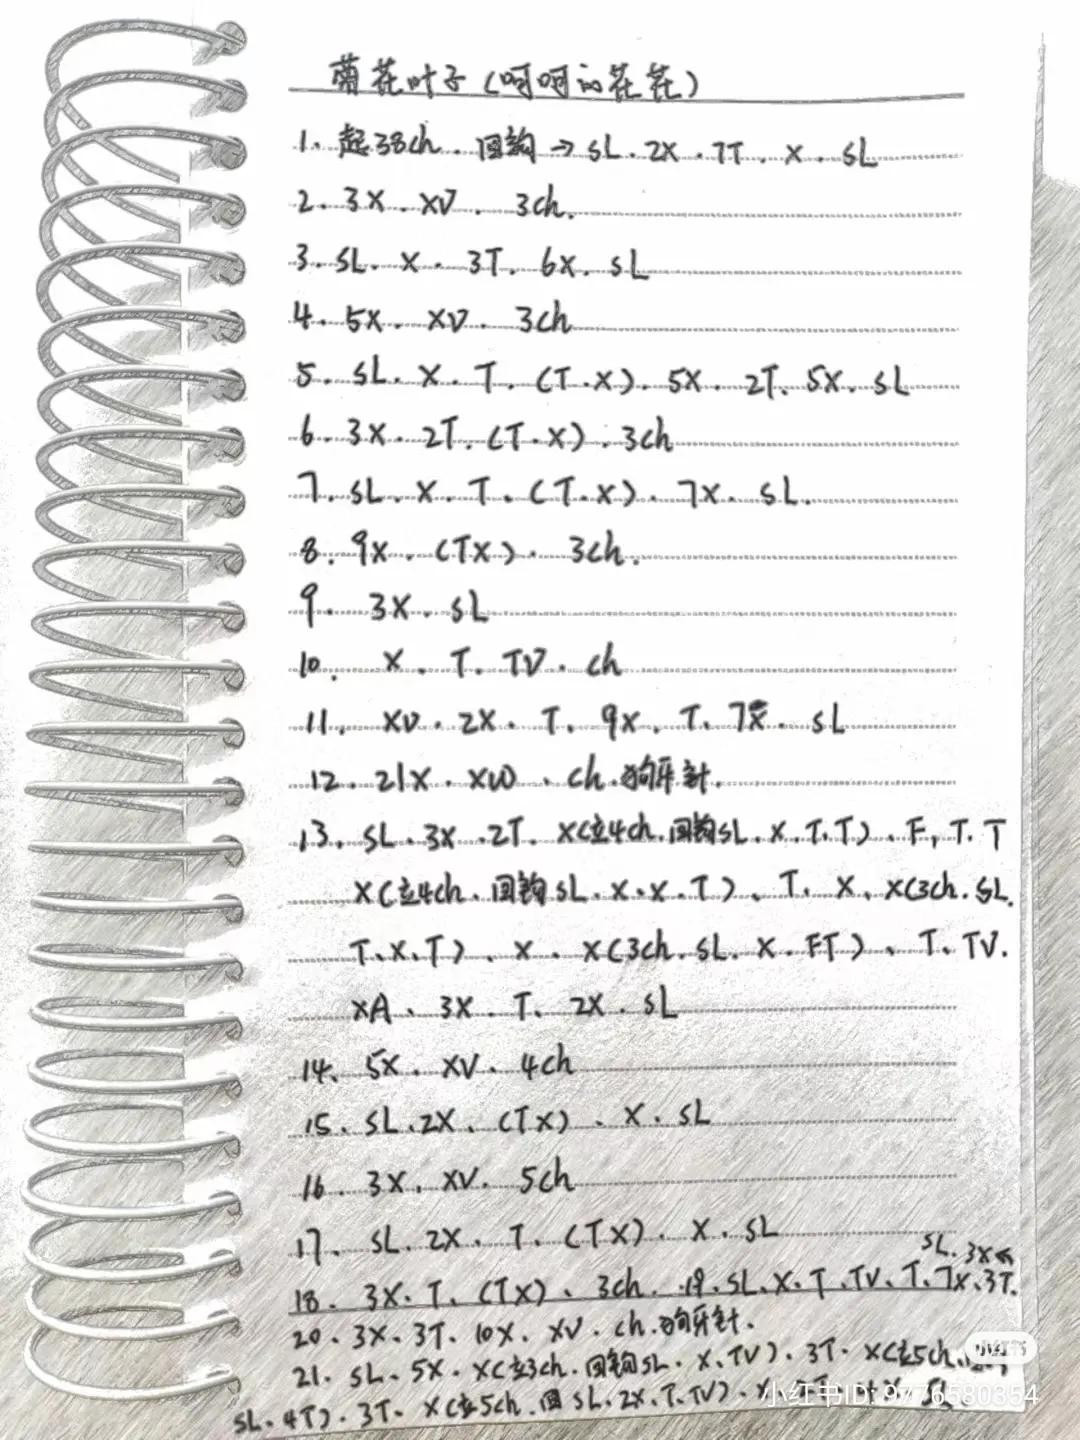 菊花叶子(呵呵的花花)
1. 起38ch. 回钩→SL. 2X. 7T. X. SL
2. 3X. XV. 3ch.
3. SL. X. 3T. 6X. SL
4. 5X. XV. 3ch
5. SL. X. T. (T.X). 5X. 2T. 5X. SL
6. 3X. 2T. (T.X). 3ch
7. SL. X. T. (T.X). 7X. SL.
8. 9X. (TX). 3ch.
9. 3X. SL
10. X. T. TV. ch
11. XV. 2X. T. 9X. T. 7X. SL
12. 21X. XW. ch.狗牙針.
13. SL. 3X. 2T. X(立4ch.回钩SL.X.T.T)、F, T. T
X(立4ch.回钩SL.X.X.T)、T. X、X(3ch.SL.
T、X、T)、X. X(3ch.SL.X.FT)、T、TV.
XA、3X. T、2X. SL
14、5X. XV. 4ch
15. SL.2X、(TX)、X. SL
16. 3X. XV. 5ch
17、SL. 2X. T. (TX). X. SL
SL. 3X←
18. 3X. T、(TX)、3ch. 19. SL、X. T. TV、T、7X、3T.
20. 3X. 3T. 10X. XV. ch.狗牙針.
21. SL. 5X. X(立3ch.回钩SL. X、TV). 3T. X(立5ch.
SL. 4T). 3T. X(立5ch.回SL. 2X、T. TV).
小红书
小红书ID: 9776580354